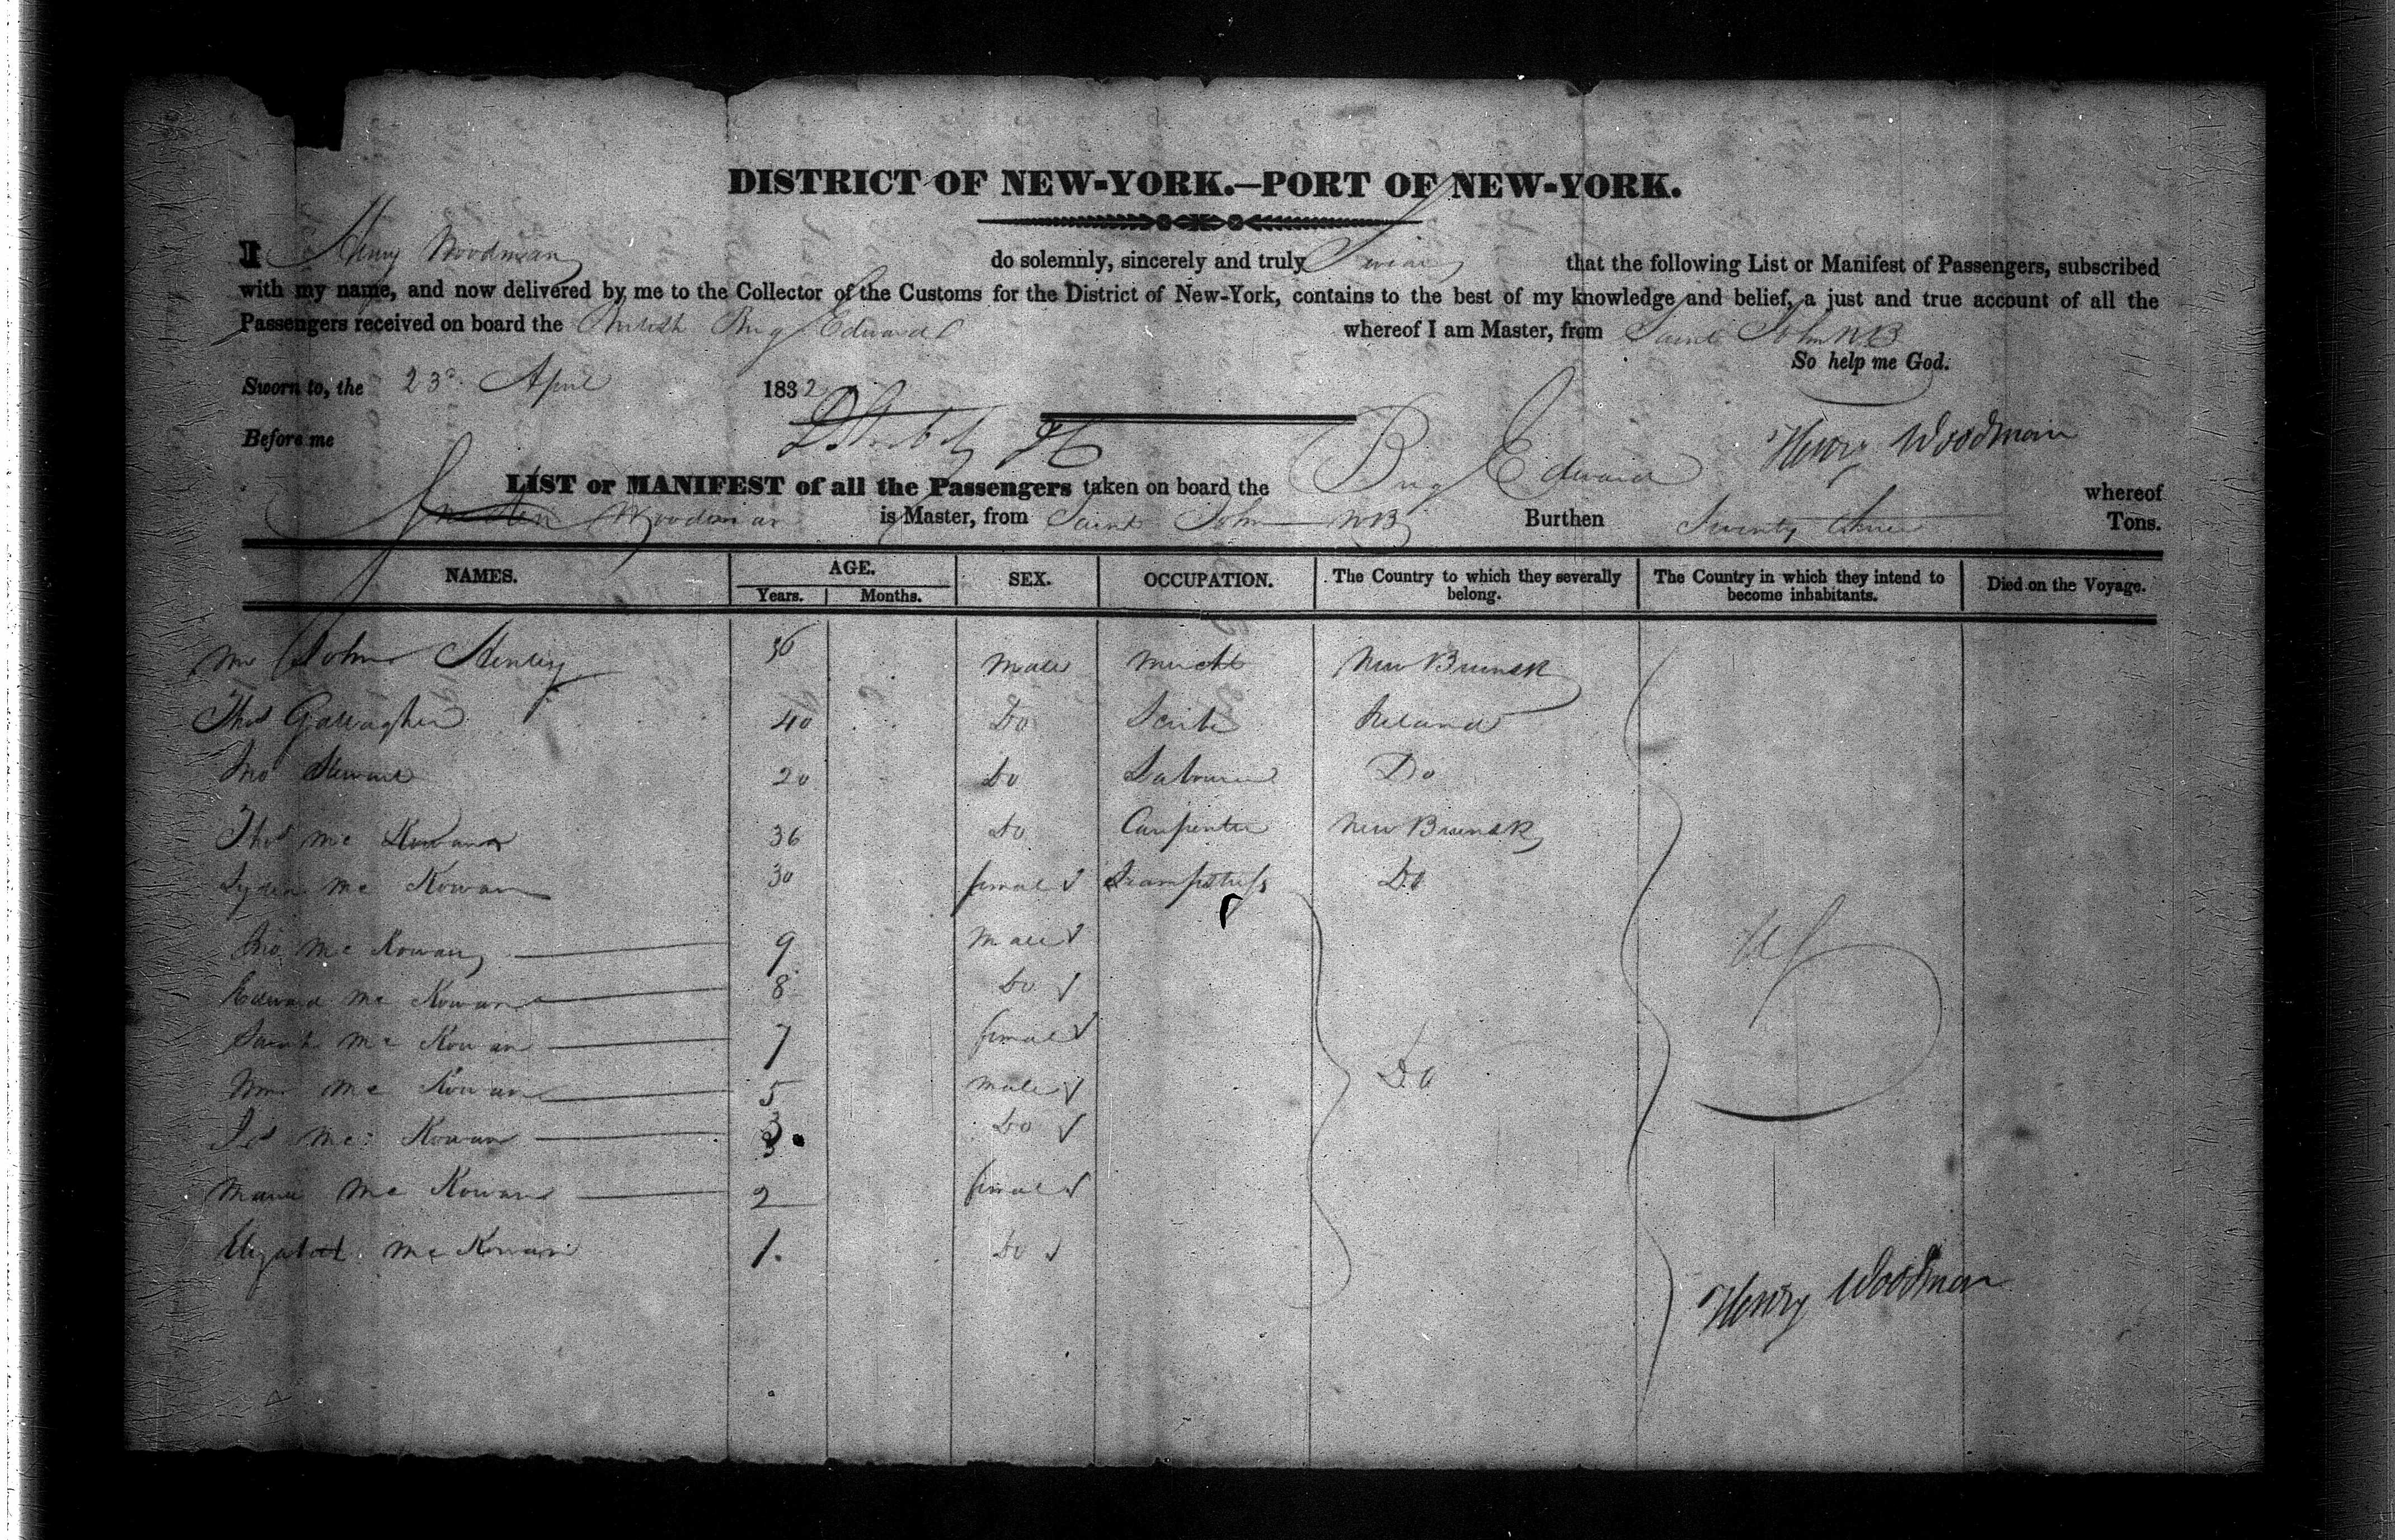 DISTRICT OF NEW-YORK.—PORT OF NEW-YORK.
I Henry Woodman do solemnly, sincerely and truly Swear that the following List or Manifest of Passengers, subscribed
with my name, and now delivered by me to the Collector of the Customs for the District of New-York, contains to the best of my knowledge and belief, a just and true account of all the
Passengers received on board the British Brig Edward whereof I am Master, from Saint John NB
So help me God.
Sworn to, the 23d April 1832
Before me Henry Woodman
LIST or MANIFEST of all the Passengers taken on board the Brig Edward whereof
Woodman is Master, from Saint John NB Burthen Tons.
NAMES. AGE. SEX. OCCUPATION. The Country to which they severally belong. The Country in which they intend to become inhabitants. Died on the Voyage.
Years. Months.
Mr John Henley 36 Male Mercht New Brunsk
Thos Gallagher 40 Do Ireland
Jno Stewart 20 Do Labourer Do
Thos Mc Kowan 36 Do Carpenter New Brunsk
Lydia Mc Kowan 30 female Seampstress Do
Jno Mc Kowan 9 Male
Edward Mc Kowan 8 Do
Sarah Mc Kowan 7 female
Wm Mc Kowan 5 male Do
Jas Mc Kowan 3 Do
Maria Mc Kowan 2 female
Elizabeth Mc Kowan 1. Do
Henry Woodman